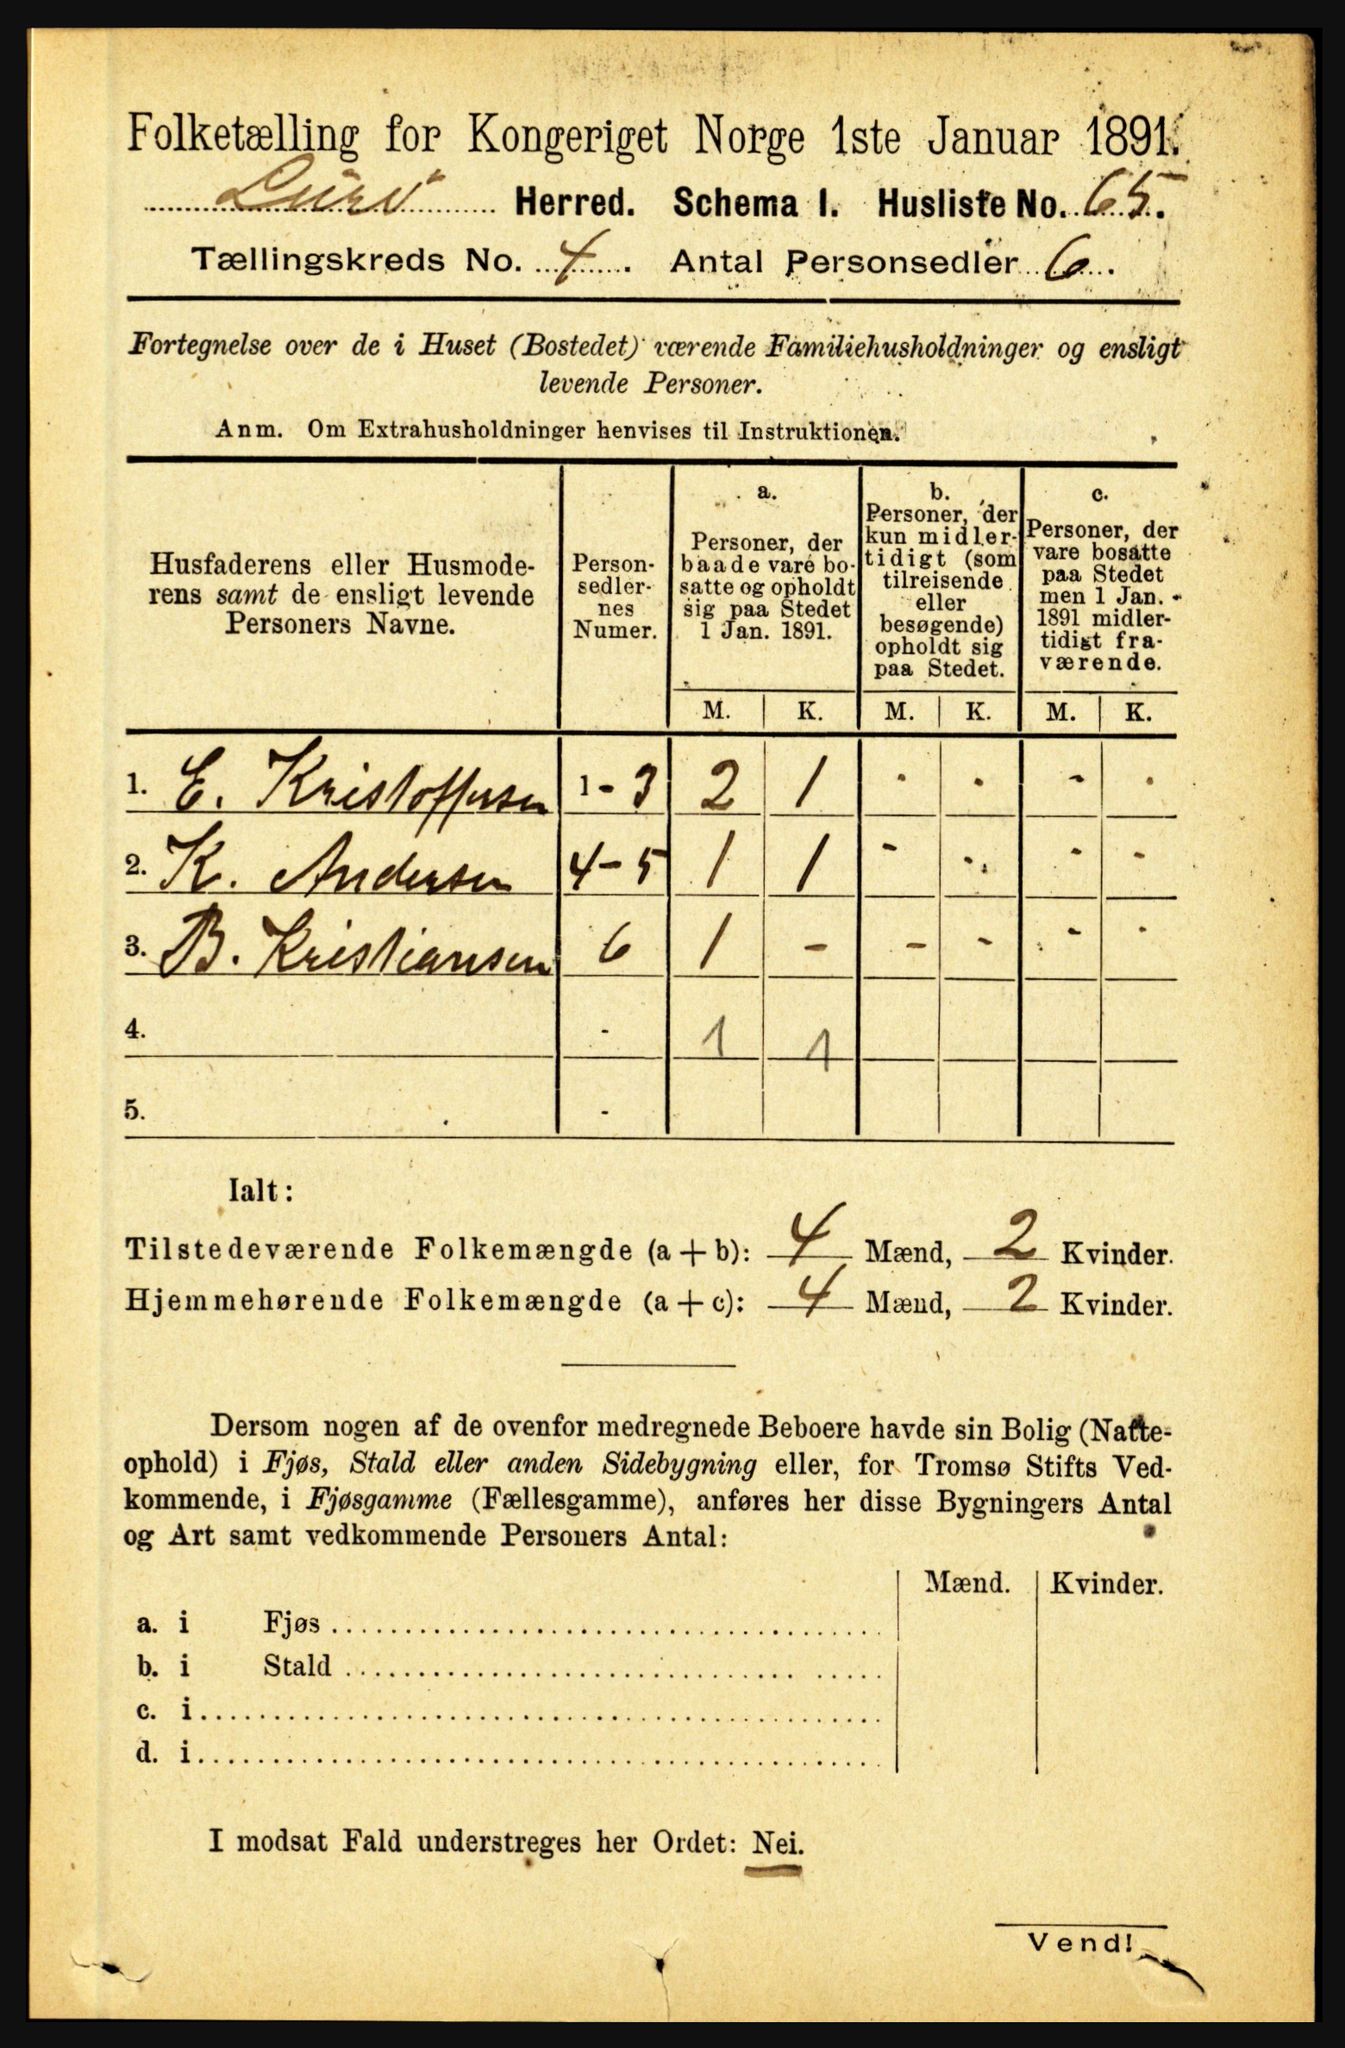 Folketælling for Kongeriget Norge 1ste Januar 1891.
Lurö Herred. Schema I. Husliste No. 65.
Tællingskreds No. 4. Antal Personsedler 6.
Fortegnelse over de i Huset (Bostedet) værende Familiehusholdninger og ensligt
levende Personer.
Anm. Om Extrahusholdninger henvises til Instruktionen.
Husfaderens eller Husmode-
rens samt de ensligt levende
Personers Navne.
Person-
sedler-
nes
Numer.
a.
Personer, der
baade vare bo-
satte og opholdt
sig paa Stedet
1 Jan. 1891.
b.
Personer, der
kun midler-
tidigt (som
tilreisende
eller
besøgende)
opholdt sig
paa Stedet.
c.
Personer, der
vare bosatte
paa Stedet
men 1 Jan.
1891 midler-
tidigt fra-
værende.
M. K. M. K. M. K.
1. E. Kristoffersen 1 - 3 2 1 - - - -
2. K. Andersen 4 - 5 1 1 - - - -
3. B. Kristiansen 6 1 - - - - -
4. - 1 1
5. -
Ialt:
Tilstedeværende Folkemængde (a + b): 4 Mænd, 2 Kvinder.
Hjemmehørende Folkemængde (a + c): 4 Mænd, 2 Kvinder.
Dersom nogen af de ovenfor medregnede Beboere havde sin Bolig (Natte-
ophold) i Fjøs, Stald eller anden Sidebygning eller, for Tromsø Stifts Ved-
kommende, i Fjøsgamme (Fællesgamme), anføres her disse Bygningers Antal
og Art samt vedkommende Personers Antal:
Mænd. Kvinder.
a. i Fjøs
b. i Stald
c. i
d. i
I modsat Fald understreges her Ordet: Nei.
Vend!